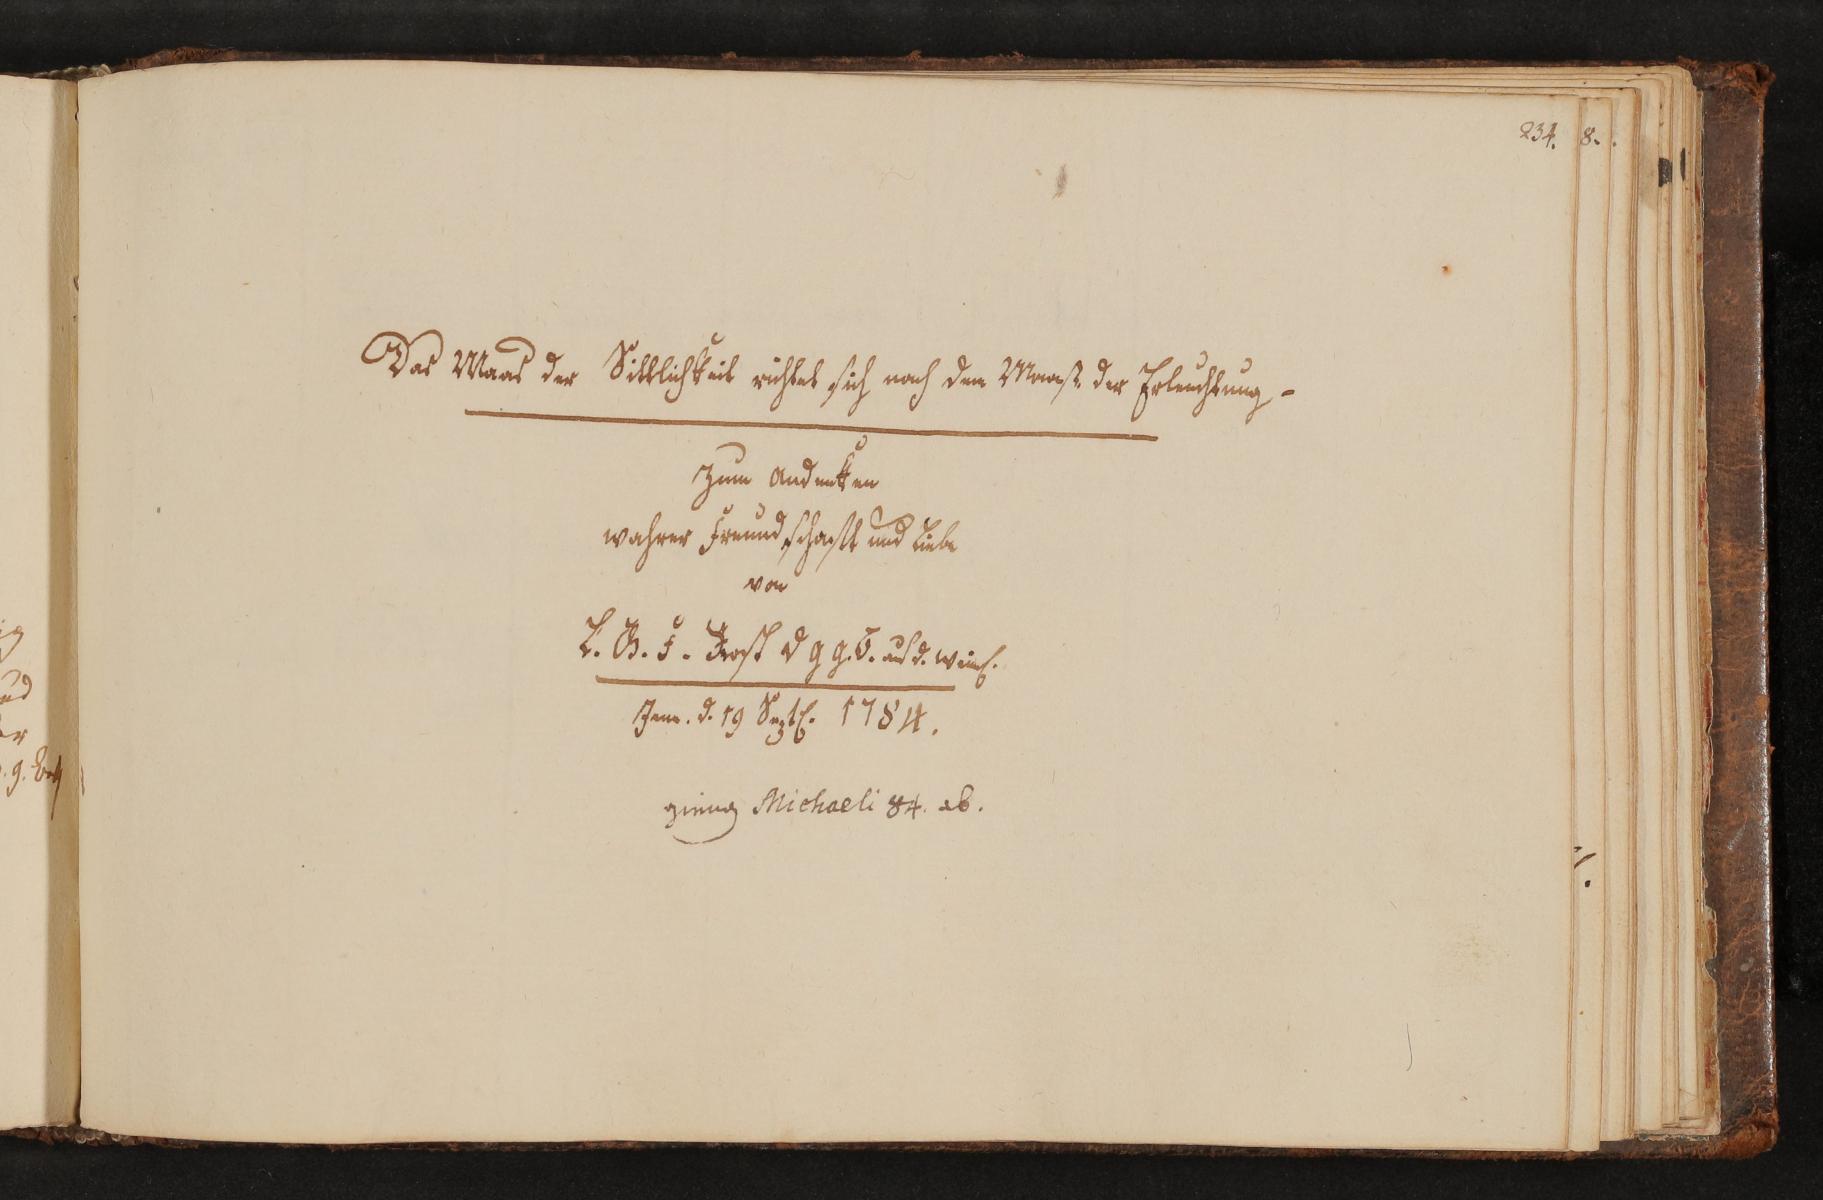 234. 8.
Das Maas der Sittlichkeit richtet sich nach dem Maaße der Erleuchtung –
Zum Andenken
wahrer Freundschafft und Liebe
von
L. G. F. Frost d g g. B. aus d. Weim.
Jena. d. 19 Septb. 1784.
gieng Michaeli 84. ab.